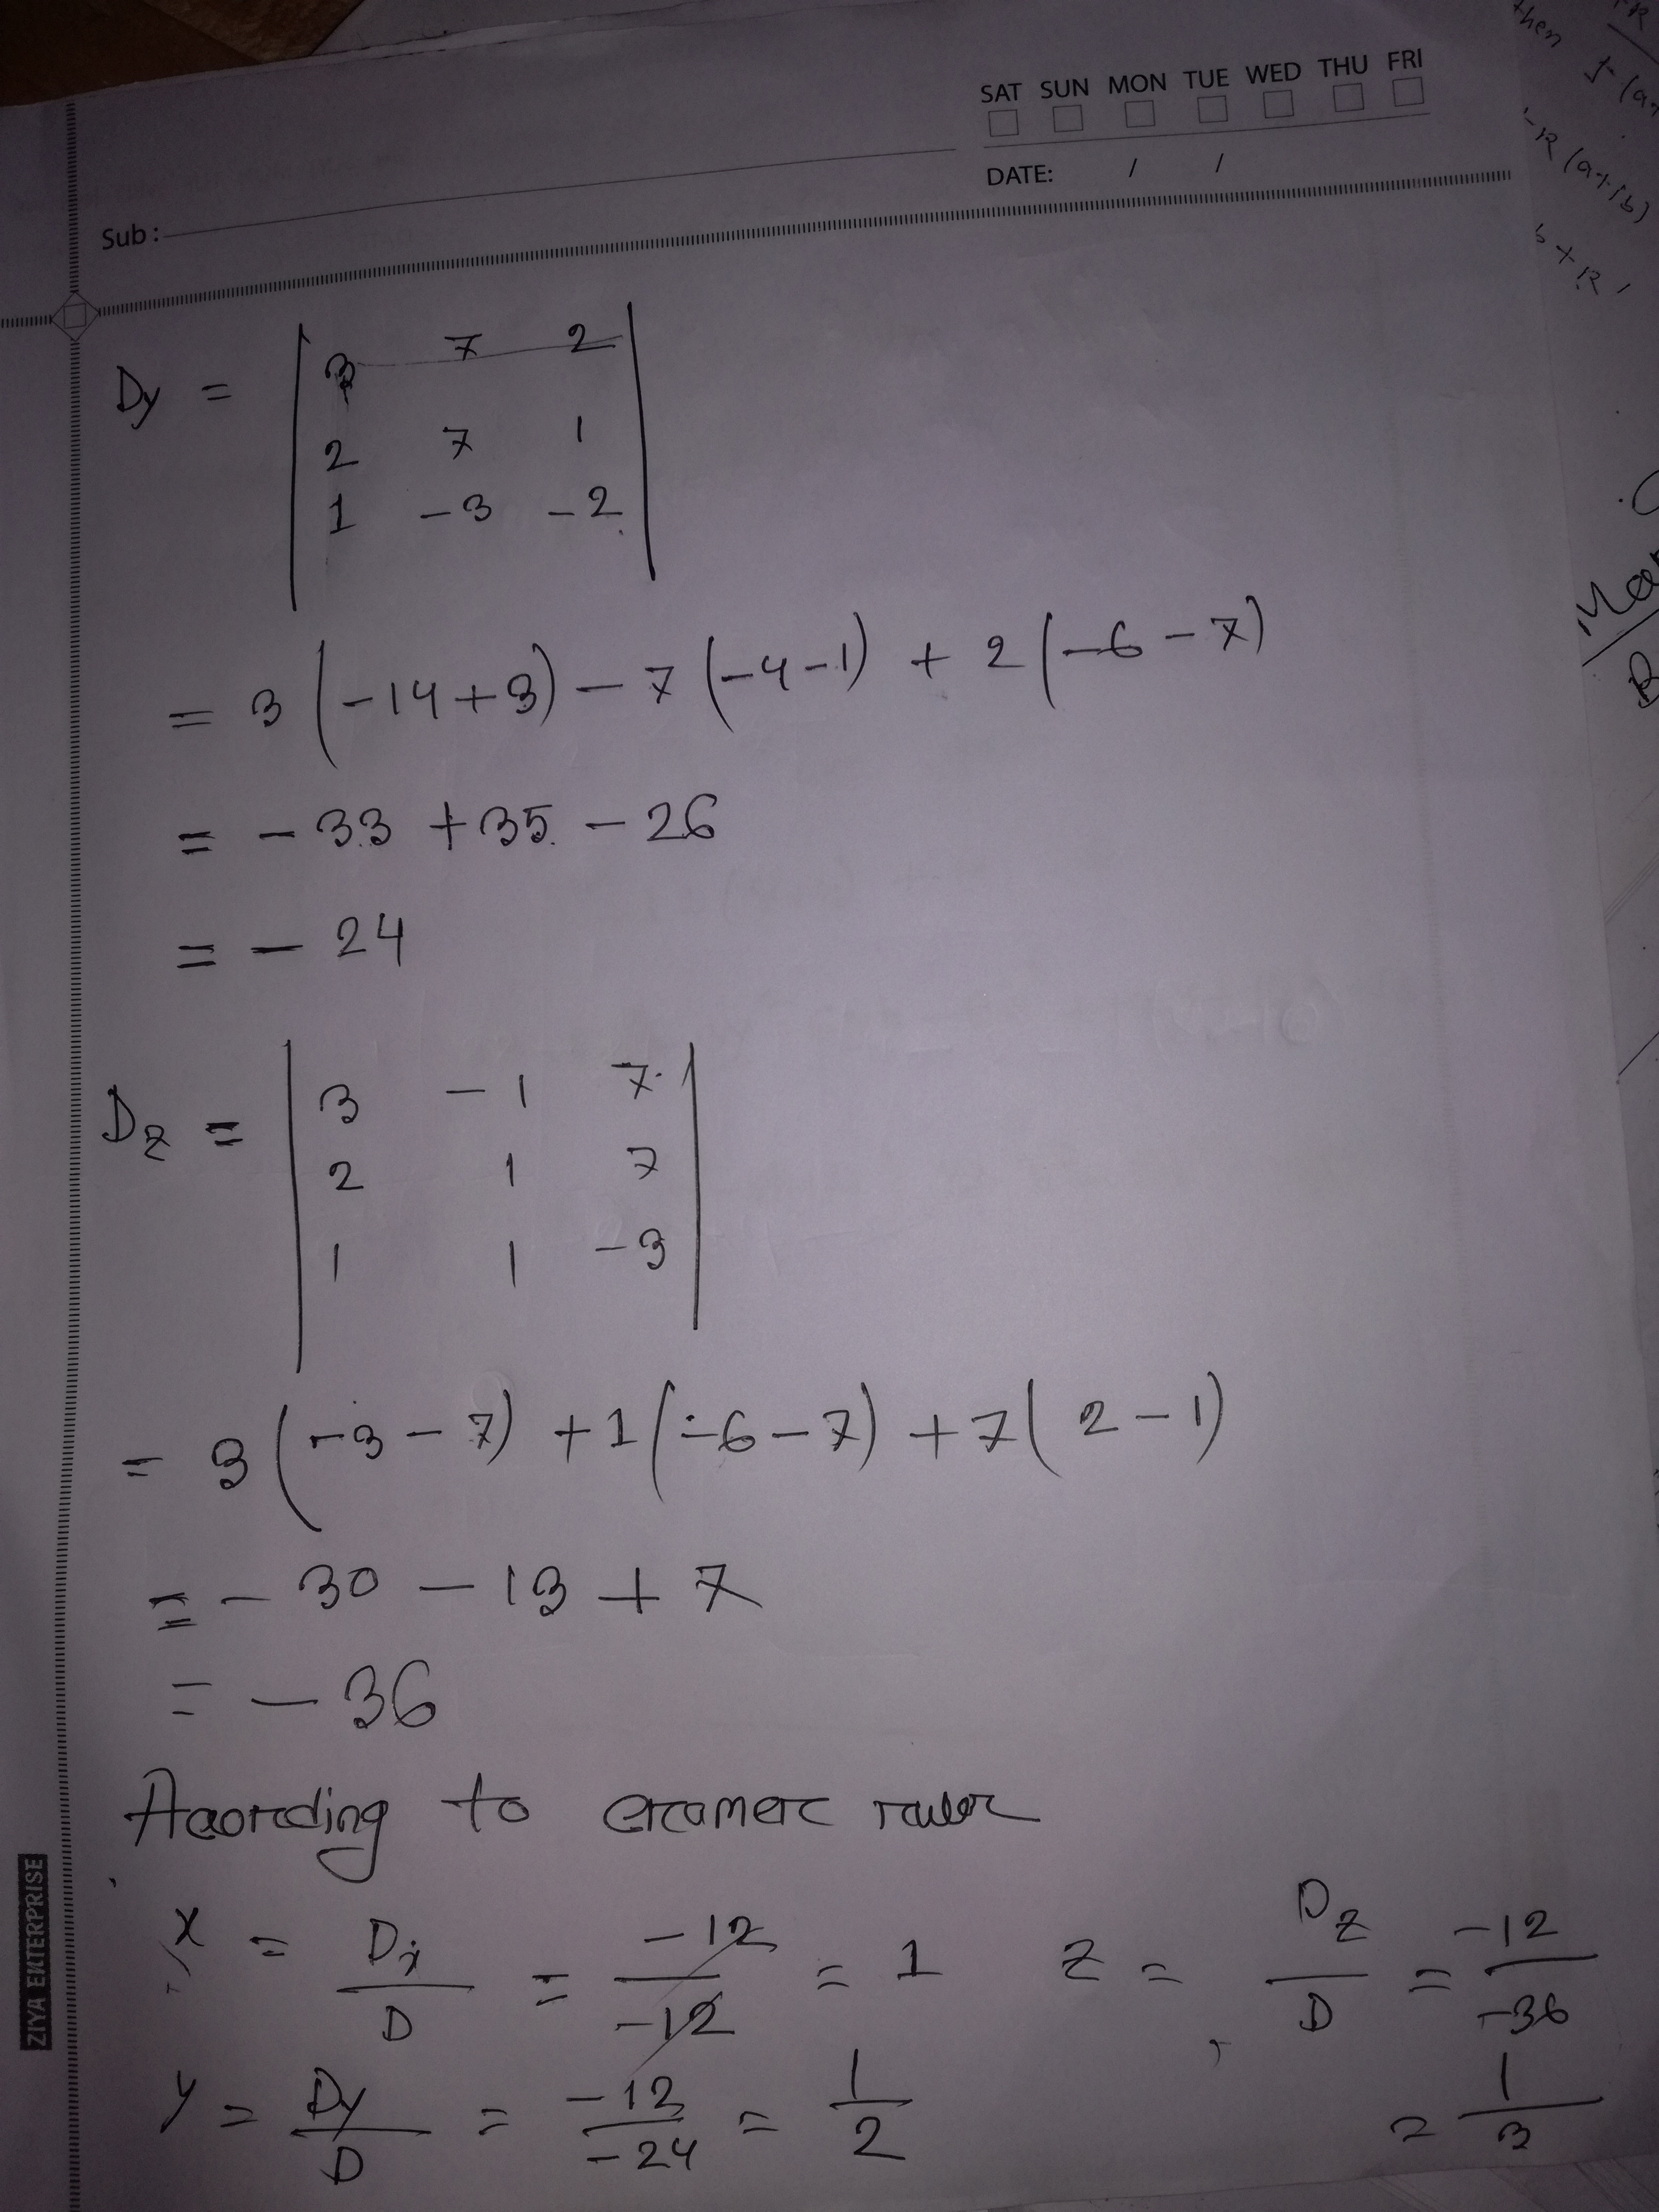 SAT SUN MON TUE WED THU FRI
DATE: / /
Sub :
Dy = | 3 7 2 |
| 2 7 1 |
| 1 -3 -2 |
= 3 (-14+3) - 7 (-4-1) + 2 (-6-7)
= - 33 + 35 - 26
= - 24
Dz = | 3 -1 7 |
| 2 1 7 |
| 1 1 -3 |
= 3 (-3-7) +1 (-6-7) +7 (2-1)
= - 30 - 13 + 7
= - 36
Acording to cramer
x = Dx/D = -12/-12 = 1 z = Dz/D = -12/-36
y = Dy/D = -12/-24 = 1/2 = 1/3
ZIYA ENTERPRISE
then
-R (a+ib)